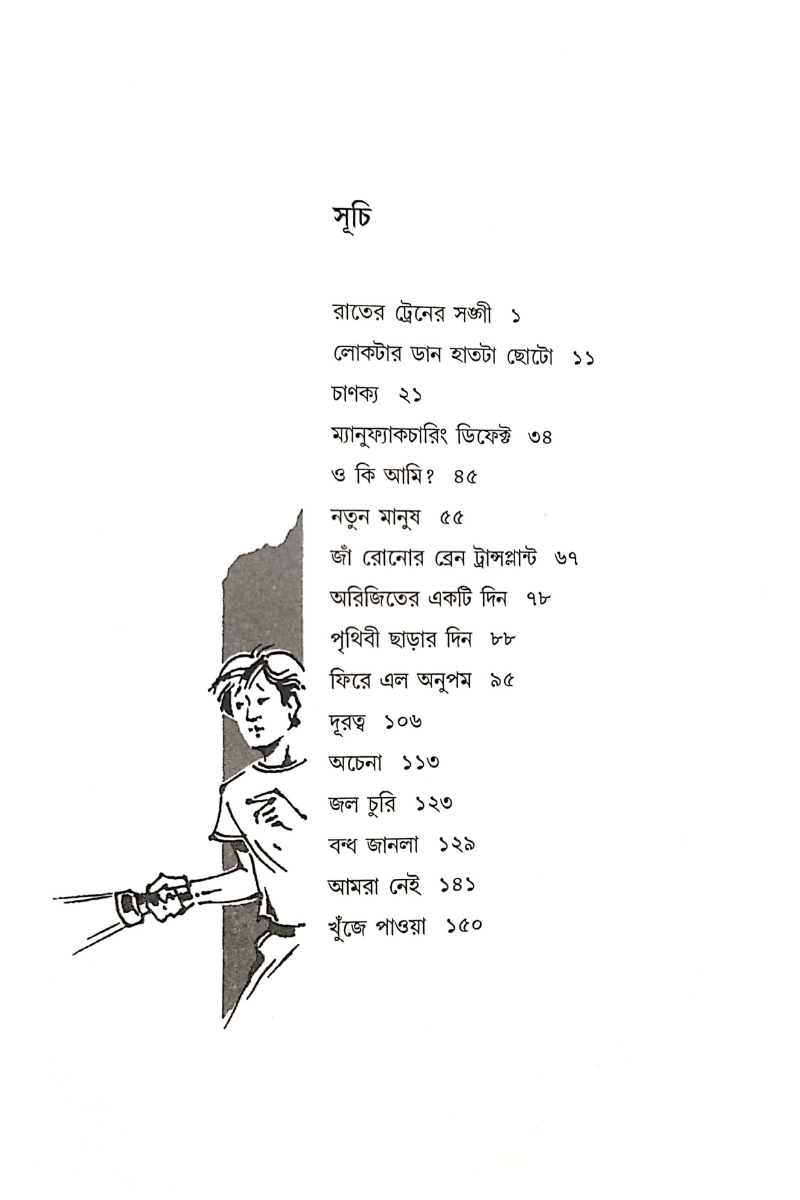 সূচি
রাতের ট্রেনের সঙ্গী ১
লোকটার ডান হাতটা ছোটো ১১
চাণক্য ২১
ম্যানুফ্যাকচারিং ডিফেক্ট ৩৪
ও কি আমি? ৪৫
নতুন মানুষ ৫৫
জাঁ রোনোর ব্রেন ট্রান্সপ্লান্ট ৬৭
অরিজিতের একটি দিন ৭৮
পৃথিবী ছাড়ার দিন ৮৮
ফিরে এল অনুপম ৯৫
দূরত্ব ১০৬
অচেনা ১১৩
জল চুরি ১২৩
বন্ধ জানলা ১২৯
আমরা নেই ১৪১
খুঁজে পাওয়া ১৫০